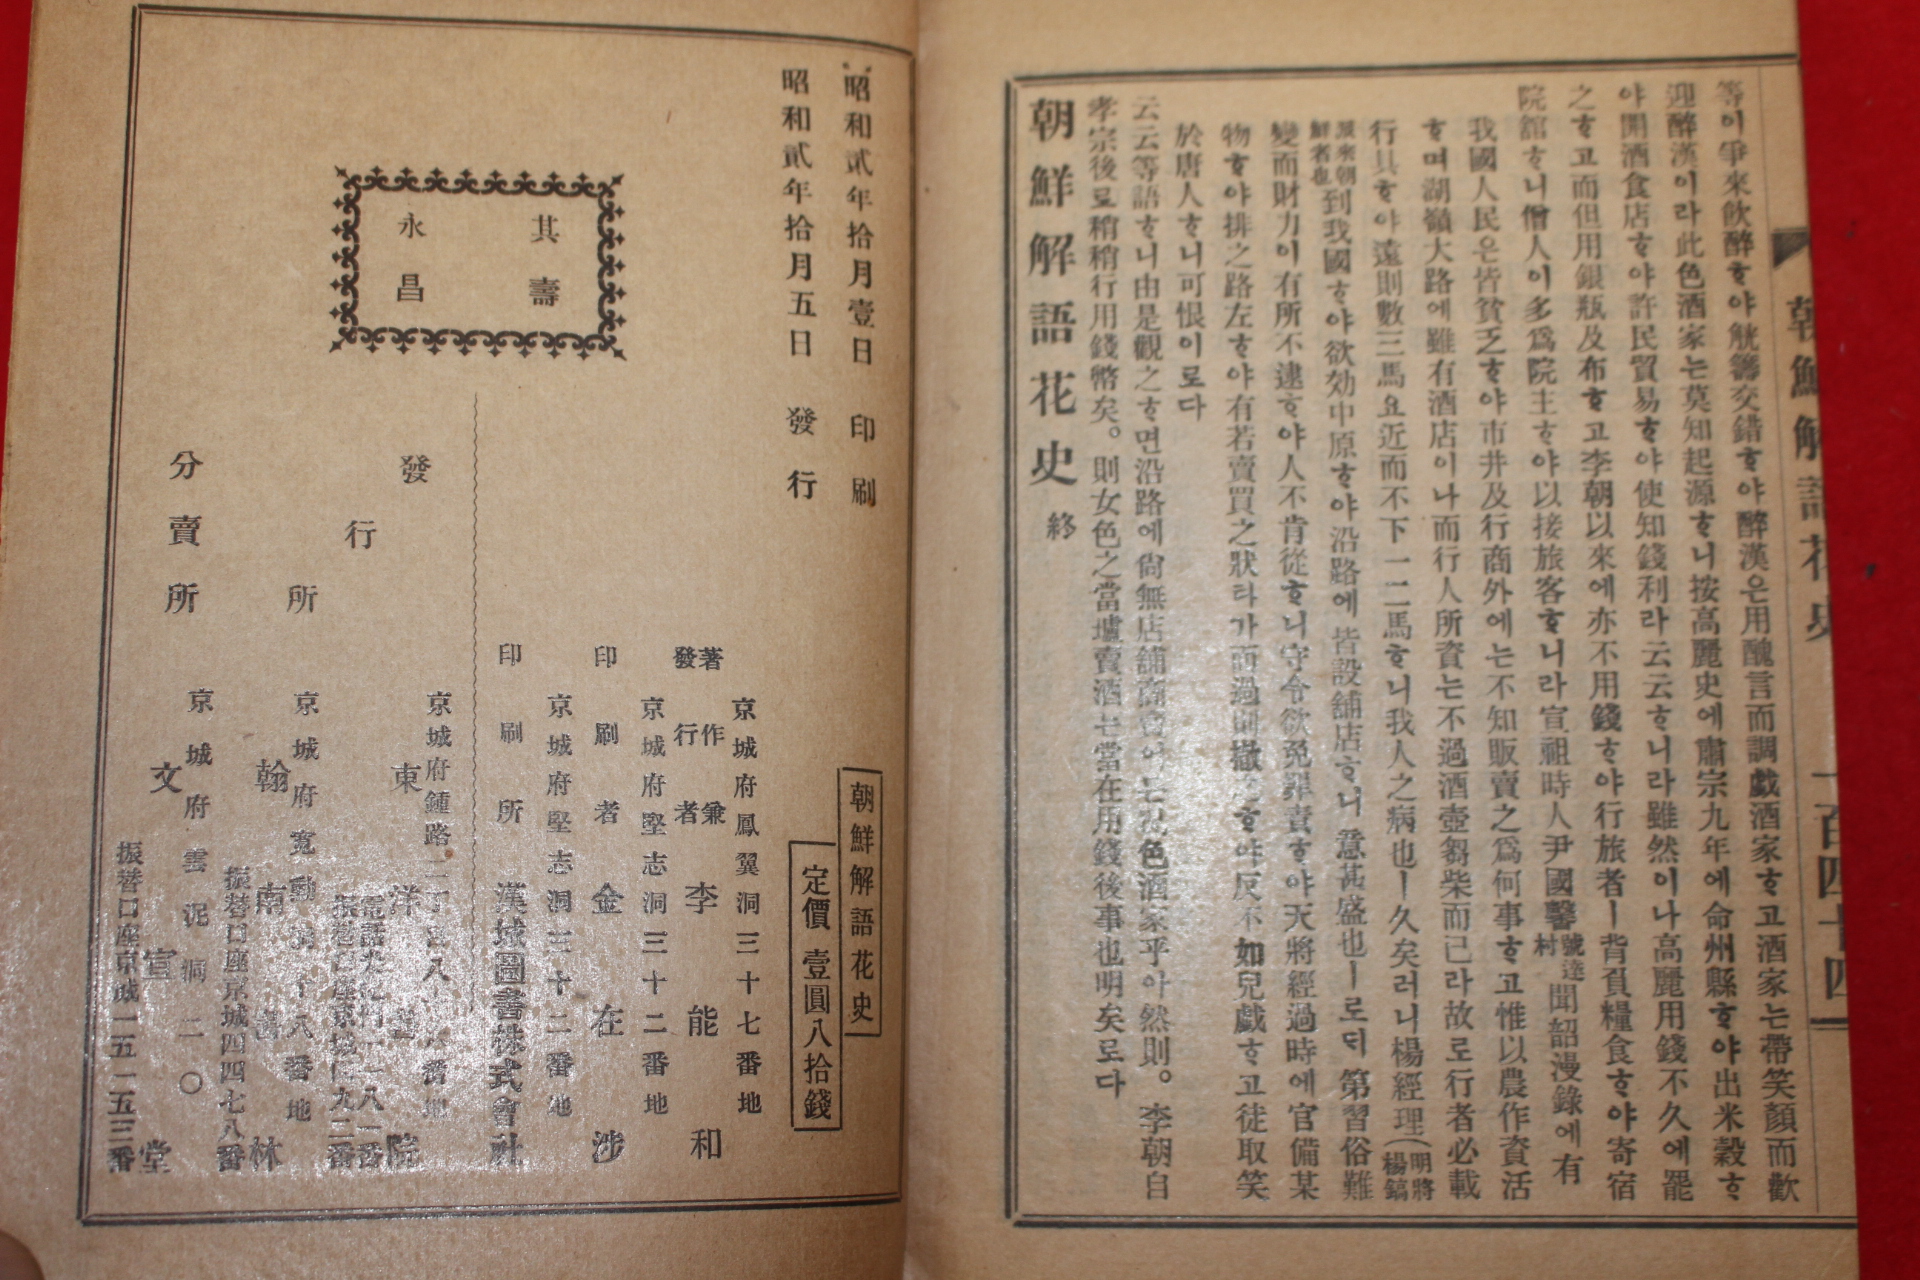 朝鮮解語花史 一百四十四
等이爭來飮醉ᄒᆞ야觥籌交錯ᄒᆞ야醉漢은用醜言而調戱酒家ᄒᆞ고酒家는帶笑顏而歡
迎醉漢이라此色酒家는莫知起源ᄒᆞ니按高麗史에肅宗九年에命州縣ᄒᆞ야出米穀ᄒᆞ
야開酒食店ᄒᆞ야許民貿易ᄒᆞ야使知錢利라云云ᄒᆞ니라雖然이나高麗用錢不久에罷
之ᄒᆞ고而但用銀瓶及布ᄒᆞ고李朝以來에亦不用錢ᄒᆞ야行旅者ㅣ背負糧食ᄒᆞ야寄宿
院舘ᄒᆞ니僧人이多爲院主ᄒᆞ야以接旅客ᄒᆞ니라宣祖時人尹國馨號達村聞韶漫錄에有
我國人民은皆貧乏ᄒᆞ야市井及行商外에는不知販賣之爲何事ᄒᆞ고惟以農作資活
ᄒᆞ며湖嶺大路에雖有酒店이나而行人所資는不過酒壺芻柴而已라故로行者必載
行具ᄒᆞ야遠則數三馬요近而不下一二馬ᄒᆞ니我人之病也ㅣ久矣러니楊經理(明將楊鎬
來朝鮮者也到我國ᄒᆞ야欲効中原ᄒᆞ야沿路에皆設舖店ᄒᆞ니意甚盛也ㅣ로ᄃᆡ第習俗難
變而財力이有所不逮ᄒᆞ야人不肯從ᄒᆞ니守令欲免罪責ᄒᆞ야天將經過時에官備某
物ᄒᆞ야排之路左ᄒᆞ야有若賣買之狀타가而過則撤ᄒᆞ야反不如兒戱ᄒᆞ고徒取笑
於唐人ᄒᆞ니可恨이로다
云云等語ᄒᆞ니由是觀之ᄒᆞ면沿路에尙無店舖商賣어든况色酒家乎아然則。李朝自
孝宗後로稍稍行用錢幣矣。則女色之當壚賣酒는當在用錢後事也明矣로다
朝鮮解語花史 終
昭和貳年拾月壹日 印刷
昭和貳年拾月五日 發行
其壽
永昌
朝鮮解語花史
定價 壹圓八拾錢
京城府鳳翼洞三十七番地
著作兼發行者 李能和
京城府堅志洞三十二番地
印刷者 金在涉
京城府堅志洞三十二番地
印刷所 漢城圖書株式會社
發行所
京城府鍾路二丁目八十八番地
東洋書院
振替口座京城
京城府寬勳洞十八番地
翰南書林
振替口座京城四四七八番
分賣所
京城府雲泥洞二〇
文宣堂
振替口座京城一五一五三番